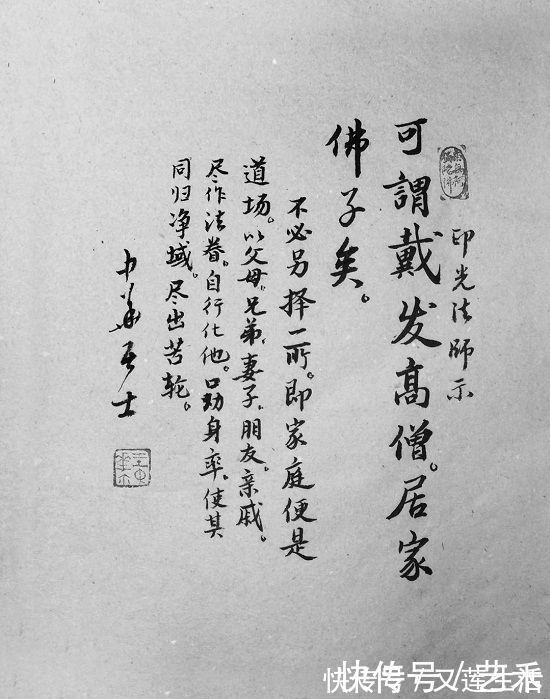 印光法師示
可謂戴发高僧。居家
佛子矣。
不必另择一所。即家庭便是
道场。以父母、兄弟、妻子、朋友。亲戚。
尽作法眷。自行化他。口劝身率。使其
同归净域。尽出苦轮。
士
快传号/艺乖